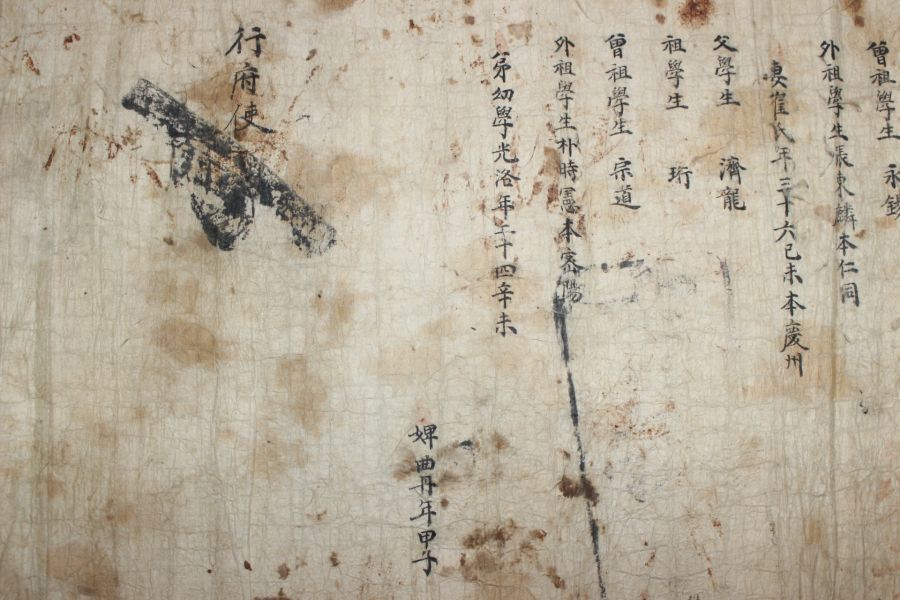 曾祖學生 永錫
外祖學生張東麟本仁同
妻崔氏年三十六己未本慶州
父學生 濟龍
祖學生 珩
曾祖學生 宗道
外祖學生朴時憲本密陽
弟幼學光洛年二十四辛未
婢曲丹年甲子
行府使